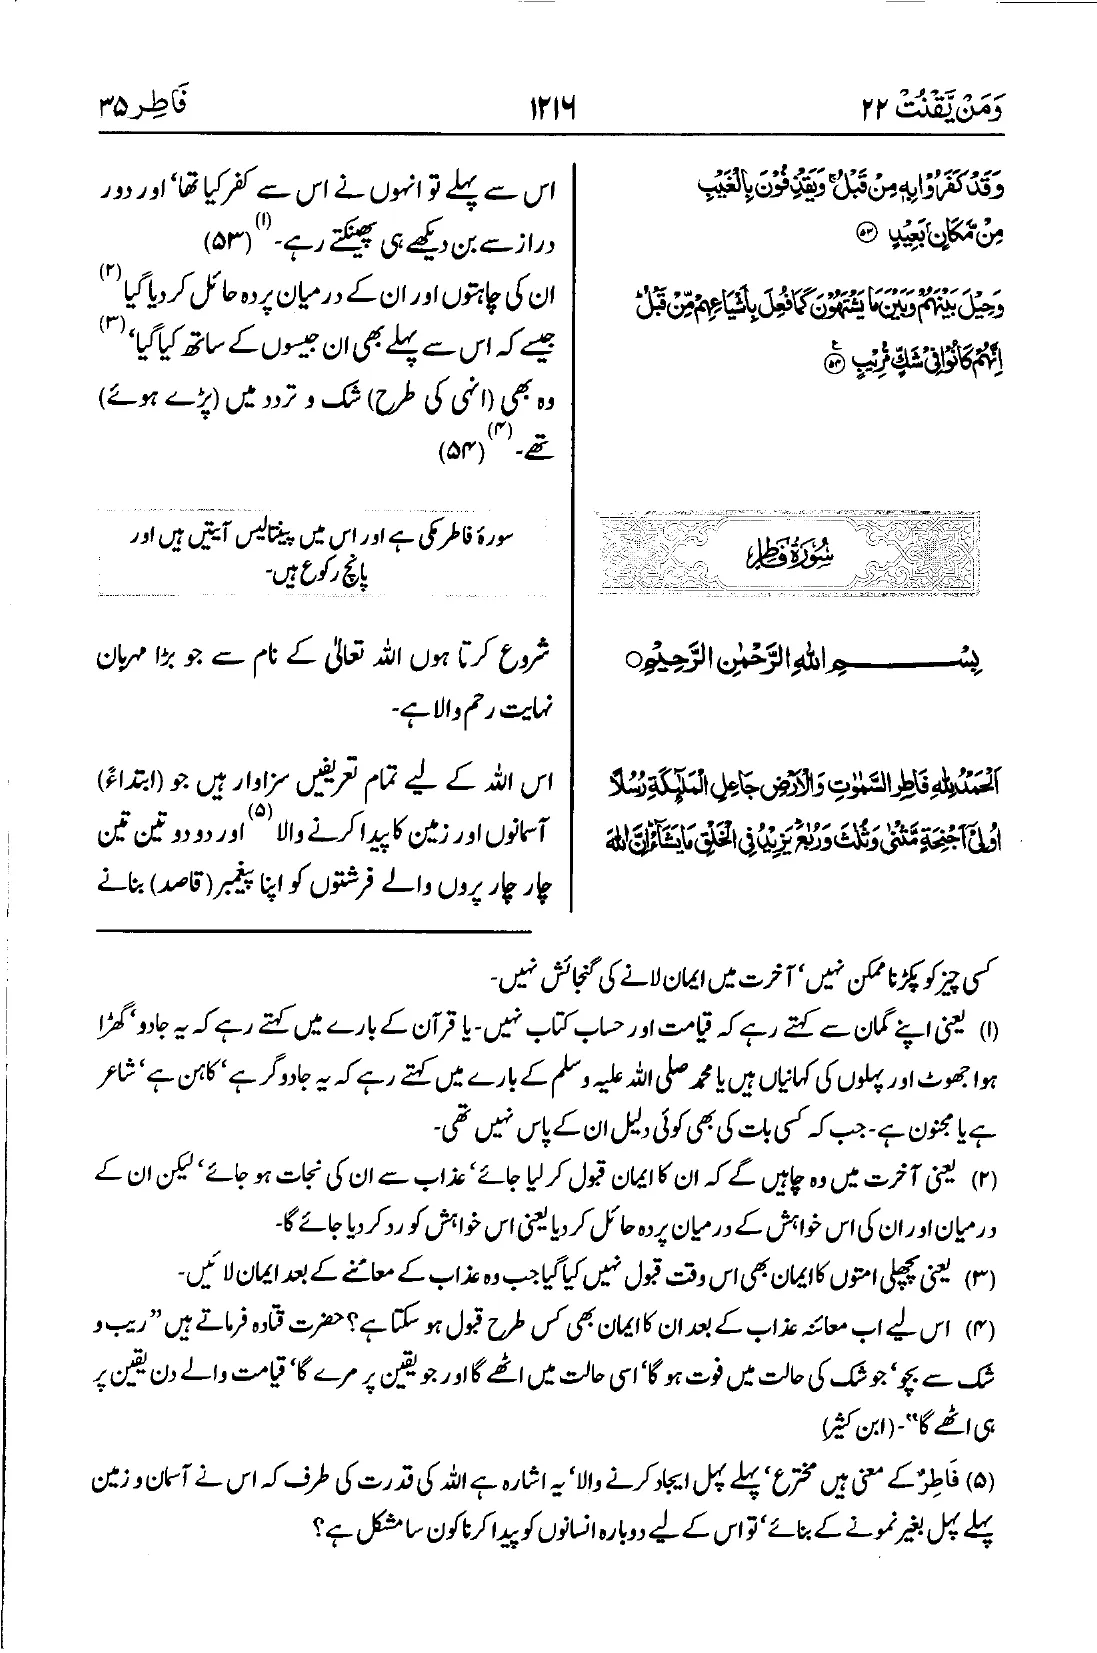 وَمَنْ يَّقْنُتْ ٢٢
١٢١٦
فَاطِر ٣٥
وَقَدْ كَفَرُوْا بِهٖ مِنْ قَبْلُ ۚ وَيَقْذِفُوْنَ بِالْغَيْبِ
مِنْ مَّكَانٍۭ بَعِيْدٍ ﴿٥٣﴾
وَحِيْلَ بَيْنَهُمْ وَبَيْنَ مَا يَشْتَهُوْنَ كَمَا فُعِلَ بِاَشْيَاعِهِمْ مِّنْ قَبْلُ ؕ
اِنَّهُمْ كَانُوْا فِيْ شَكٍّ مُّرِيْبٍ ﴿٥٤﴾
سُوْرَةُ فَاطِرٍ
بِسْمِ اللهِ الرَّحْمٰنِ الرَّحِيْمِ ○
اَلْحَمْدُ لِلّٰهِ فَاطِرِ السَّمٰوٰتِ وَالْاَرْضِ جَاعِلِ الْمَلٰٓئِكَةِ رُسُلًا
اُولِيْٓ اَجْنِحَةٍ مَّثْنٰى وَثُلٰثَ وَرُبٰعَ ؕ يَزِيْدُ فِي الْخَلْقِ مَا يَشَآءُ ؕ اِنَّ اللهَ
اس سے پہلے تو انہوں نے اس سے کفر کیا تھا، اور دور
دراز سے بن دیکھے ہی پھینکتے رہے۔ (۱) (۵۳)
ان کی چاہتوں اور ان کے درمیان پردہ حائل کر دیا گیا (۲)
جیسے کہ اس سے پہلے بھی ان جیسوں کے ساتھ کیا گیا، (۳)
وہ بھی (انہی کی طرح) شک و تردد میں (پڑے ہوئے)
تھے۔ (۴) (۵۴)
سورۂ فاطر مکی ہے اور اس میں پینتالیس آیتیں ہیں اور
پانچ رکوع ہیں۔
شروع کرتا ہوں اللہ تعالیٰ کے نام سے جو بڑا مہربان
نہایت رحم والا ہے۔
اس اللہ کے لیے تمام تعریفیں سزاوار ہیں جو (ابتداءً)
آسمانوں اور زمین کا پیدا کرنے والا (۵) اور دو دو تین تین
چار چار پروں والے فرشتوں کو اپنا پیغمبر (قاصد) بنانے
کسی چیز کو پکڑنا ممکن نہیں، آخرت میں ایمان لانے کی گنجائش نہیں۔
(۱) یعنی اپنے گمان سے کہتے رہے کہ قیامت اور حساب کتاب نہیں۔ یا قرآن کے بارے میں کہتے رہے کہ یہ جادو، گھڑا
ہوا جھوٹ اور پہلوں کی کہانیاں ہیں یا محمد صلی اللہ علیہ وسلم کے بارے میں کہتے رہے کہ یہ جادوگر ہے، کاہن ہے، شاعر
ہے یا مجنون ہے۔ جب کہ کسی بات کی بھی کوئی دلیل ان کے پاس نہیں تھی۔
(۲) یعنی آخرت میں وہ چاہیں گے کہ ان کا ایمان قبول کر لیا جائے، عذاب سے ان کی نجات ہو جائے، لیکن ان کے
درمیان اور ان کی اس خواہش کے درمیان پردہ حائل کر دیا یعنی اس خواہش کو رد کر دیا جائے گا۔
(۳) یعنی پچھلی امتوں کا ایمان بھی اس وقت قبول نہیں کیا گیا جب وہ عذاب کے معائنے کے بعد ایمان لائیں۔
(۴) اس لیے اب معائنہ عذاب کے بعد ان کا ایمان بھی کس طرح قبول ہو سکتا ہے؟ حضرت قتادہ فرماتے ہیں ”ریب و
شک سے بچو، جو شک کی حالت میں فوت ہو گا، اسی حالت میں اٹھے گا اور جو یقین پر مرے گا، قیامت والے دن یقین پر
ہی اٹھے گا“۔ (ابن کثیر)
(۵) فَاطِرٌ کے معنی ہیں مخترع، پہلے پہل ایجاد کرنے والا، یہ اشارہ ہے اللہ کی قدرت کی طرف کہ اس نے آسمان و زمین
پہلے پہل بغیر نمونے کے بنائے، تو اس کے لیے دوبارہ انسانوں کو پیدا کرنا کون سا مشکل ہے؟